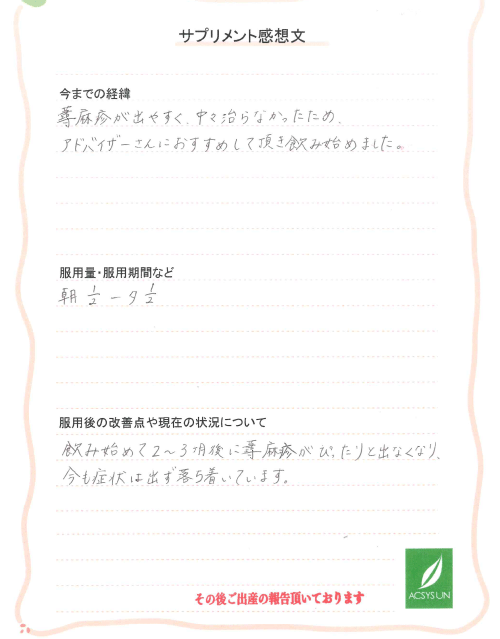 サプリメント感想文
今までの経緯
蕁麻疹が出やすく、中々治らなかったため、
アドバイザーさんにおすすめして頂き飲み始めました。
服用量・服用期間など
朝 1/2 ー 夕 1/2
服用後の改善点や現在の状況について
飲み始めて2～3ヶ月後に蕁麻疹がぴったりと出なくなり、
今も症状は出ず落ち着いています。
その後ご出産の報告頂いております
ACSYSUN